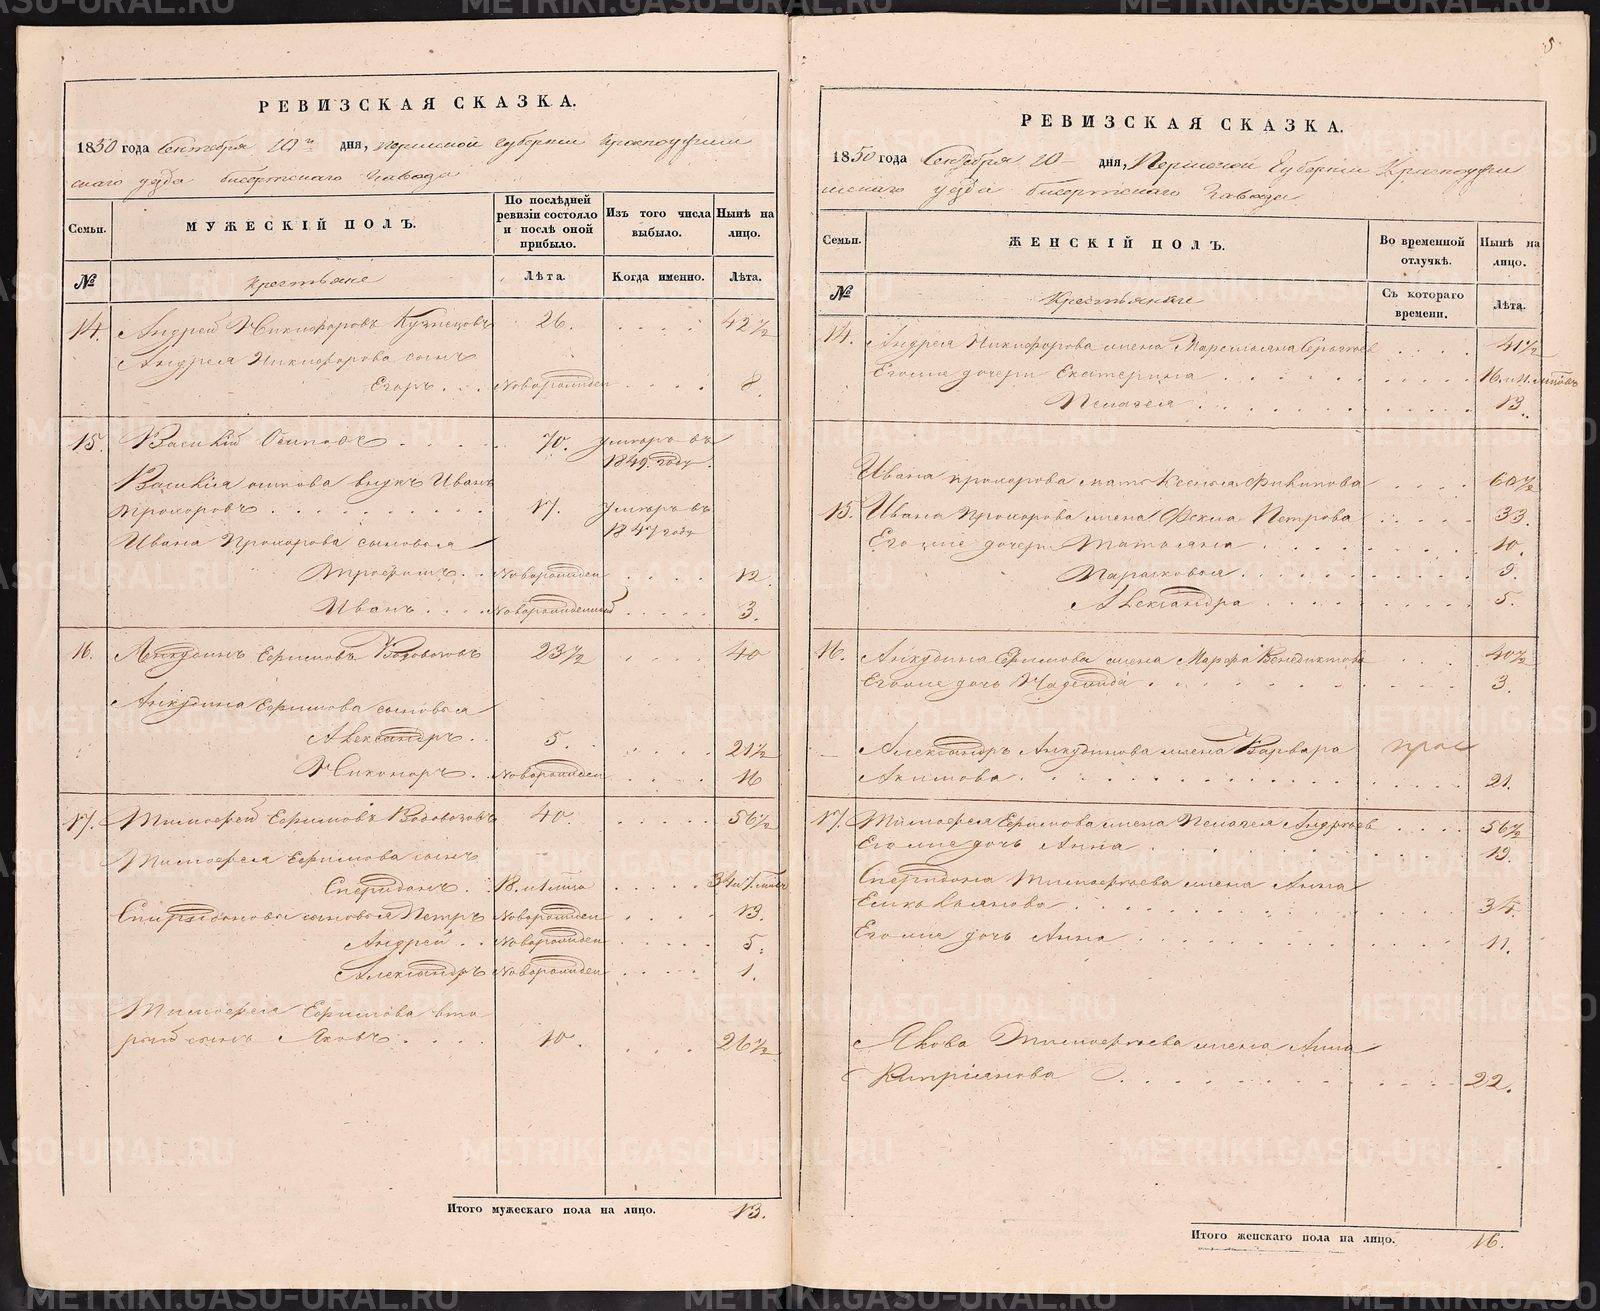 5
РЕВИЗСКАЯ СКАЗКА.
1850 года Сентября 10го дня, Пермской Губернии Красноуфим
скаго уезда бисертскаго завода
Семьи. МУЖЕСКІЙ ПОЛЪ. По послѣдней ревизіи состояло и послѣ оной прибыло. Изъ того числа выбыло. Нынѣ на лицо.
№ Крестьяне Лѣта. Когда именно. Лѣта.
14. Андрей Никифоровъ Кузнецовъ 26. 42½
Андрея Никифорова сынъ
Егоръ Новорожден 8.
15. Василій Осиповъ 70. умеръ въ
1849. году.
Василія осипова внукъ Иванъ
Прохоровъ 17. умеръ въ
1847 году
Ивана Прохорова сыновья
Трофимъ Новорожден 12.
Иванъ Новорожденный 3.
16. Анкудинъ Ефимовъ Водовозовъ 23½ 40
Анкудина Ефимова сыновья
Александръ 5. 21½
Никоноръ Новорожден 16
17. Тимофей Ефимовъ Водовозовъ 40. 56½
Тимофея Ефимова сынъ
Спиридонъ 18. и 1 мѣсяца
Спиридоновы сыновья Петръ Новорожден 13.
Андрей Новорожден 5.
Александръ Новорожден 1.
Тимофея Ефимова вто
рый сынъ Яковъ 10. 26½
Итого мужескаго пола на лицо. 13.
РЕВИЗСКАЯ СКАЗКА.
1850 года Сентября 10 дня, Пермской Губерніи Красноуфи
мскаго уезда бисертскаго завода
Семьи. ЖЕНСКІЙ ПОЛЪ. Во временной отлучкѣ. Нынѣ на лицо.
№ Крестьянки Съ котораго времени. Лѣта.
14. Андрея Никифорова жена Маремьяна Сергѣев 41½
Его же дочери Екатерина 16. и 11.
Пелагея 13.
Ивана прохорова мать Ксенья Филипова 60½
15. Ивана Прохорова жена Фекла Петрова 33.
Его же дочери Татьяна 10.
Парасковья 9.
Александра 5.
16. Анкудина Ефимова жена Марфа Венедиктова 40½
Его же дочь Надежда 3.
Александръ Анкудинова жена Варвара
Акимова 21.
17. Тимофея Ефимова жена Пелагея Андрѣев 56½
Его же дочь Анна 19.
Спиридона Тимофѣева жена Анна
Емельянова 34.
Его же дочь Анна 11.
Якова Тимофѣева жена Анна
Кипріянова 22.
Итого женскаго пола на лицо. 16.
METRIKI.GASO-URAL.RU